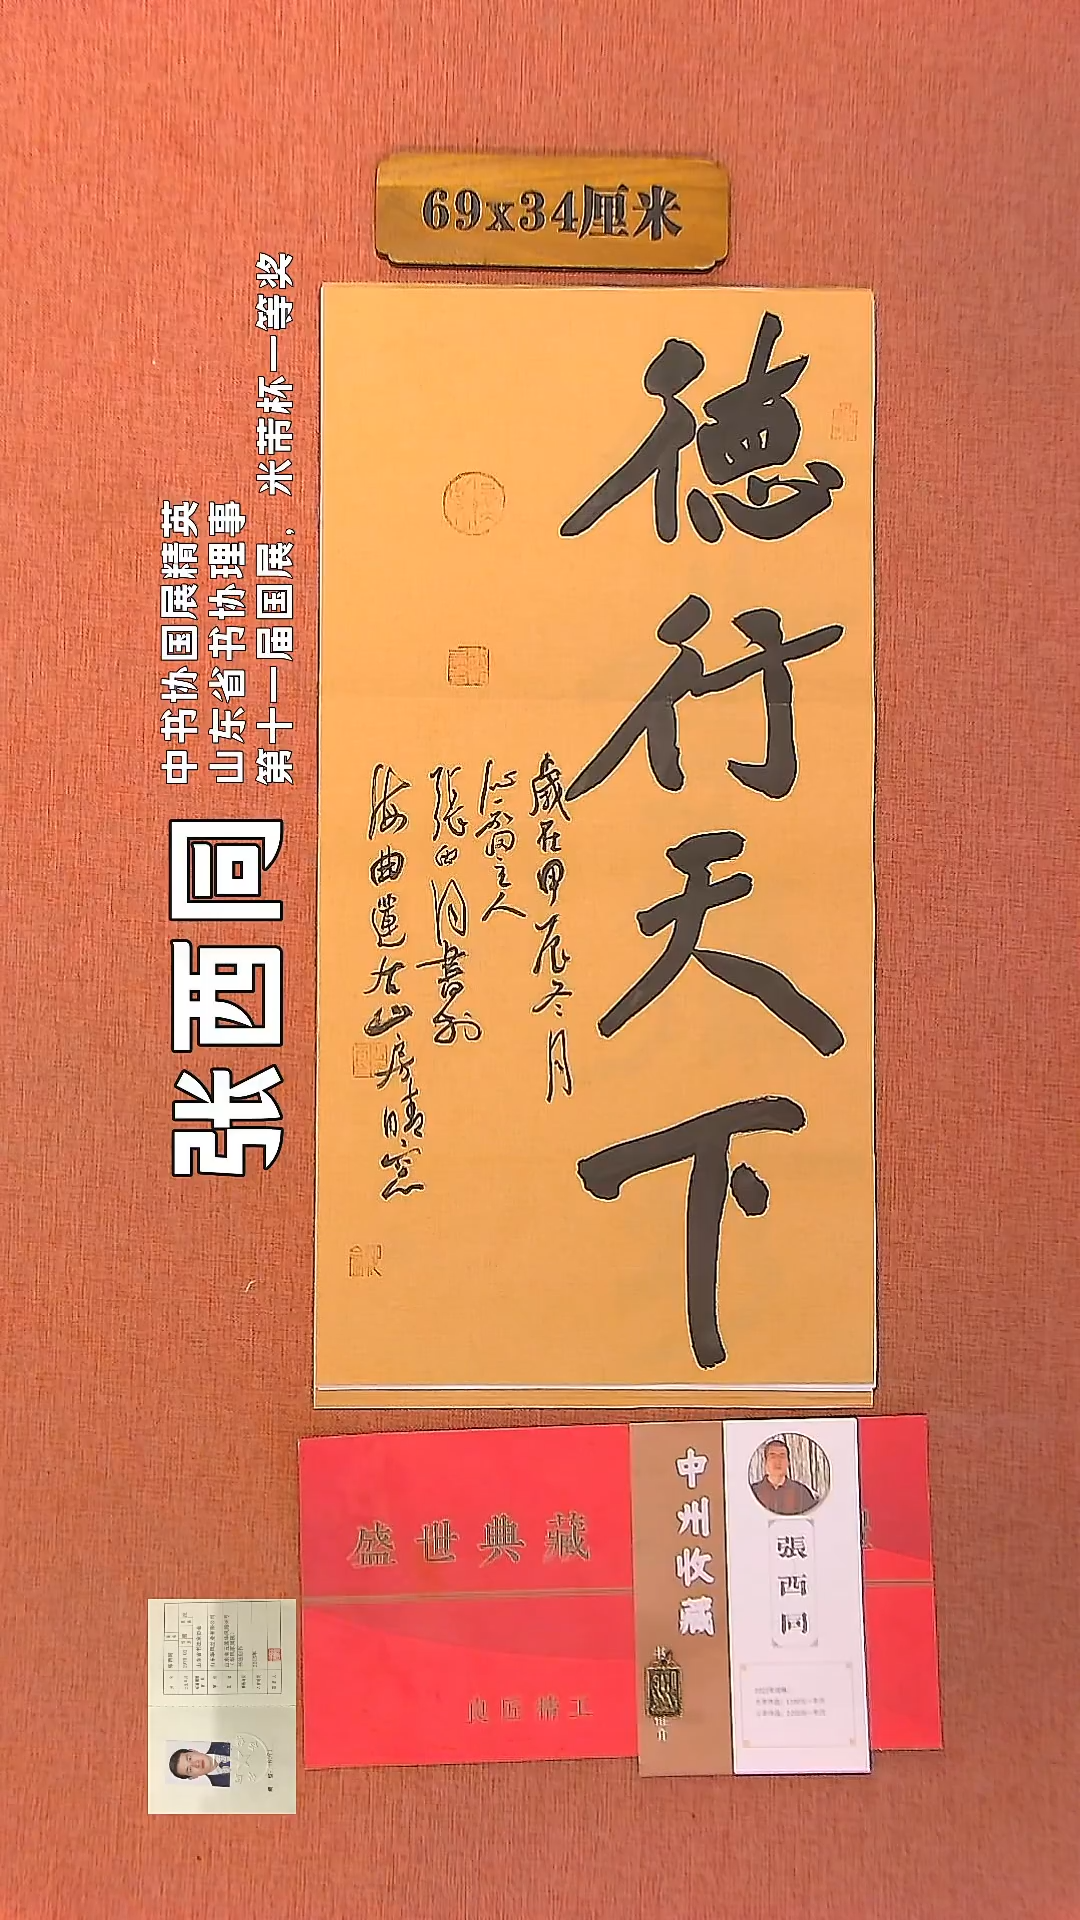 69x34厘米
德行天下
歲在甲辰冬月
沁齋主人
張西同書於
海曲蓮右山房晴窓
张西同
中书协国展精英
山东省书协理事
第十一届国展，米芾杯一等奖
盛世典藏
良匠精工
中州收藏
張西同